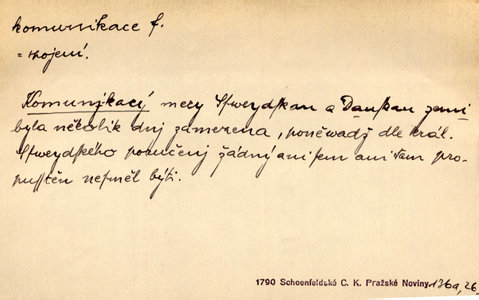 komunikace f.
= spojení.
Komunykacý mezy Sſweydſkau a Danſkau zemi
byla několik dnj zamezena, poněwadž dle král.
Sſweydſkého poručenj žádný ani ſem ani tam pro-
puſſtěn neſměl býti.
1790 Schoenfeldské C. K. Pražské Noviny 136a, 26.